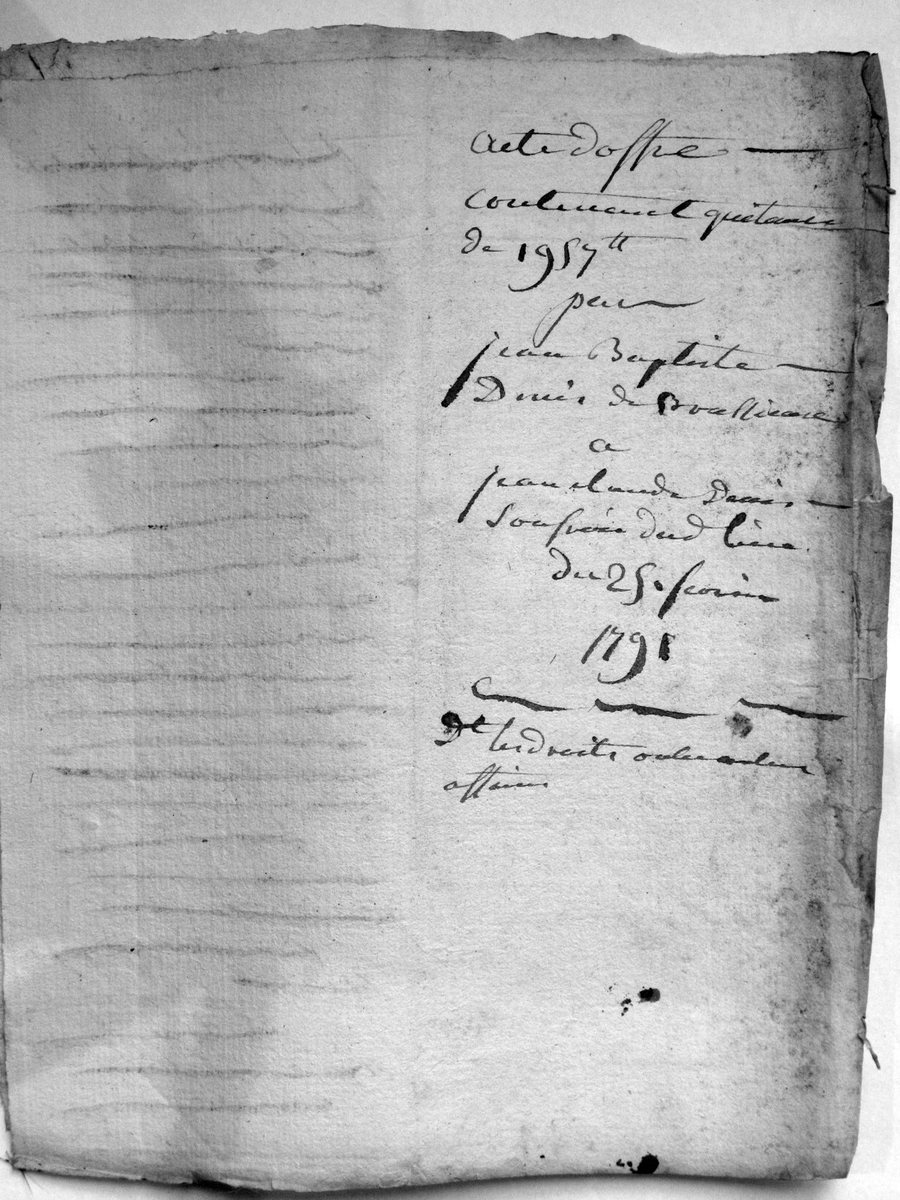 acte doffre
contenant quitance
de 1957 tt
par
jean Baptiste
Denis de
a
jean claude Denis
son frere dud lieu
du 25. fevrier
1791
Dt les droits
affaires